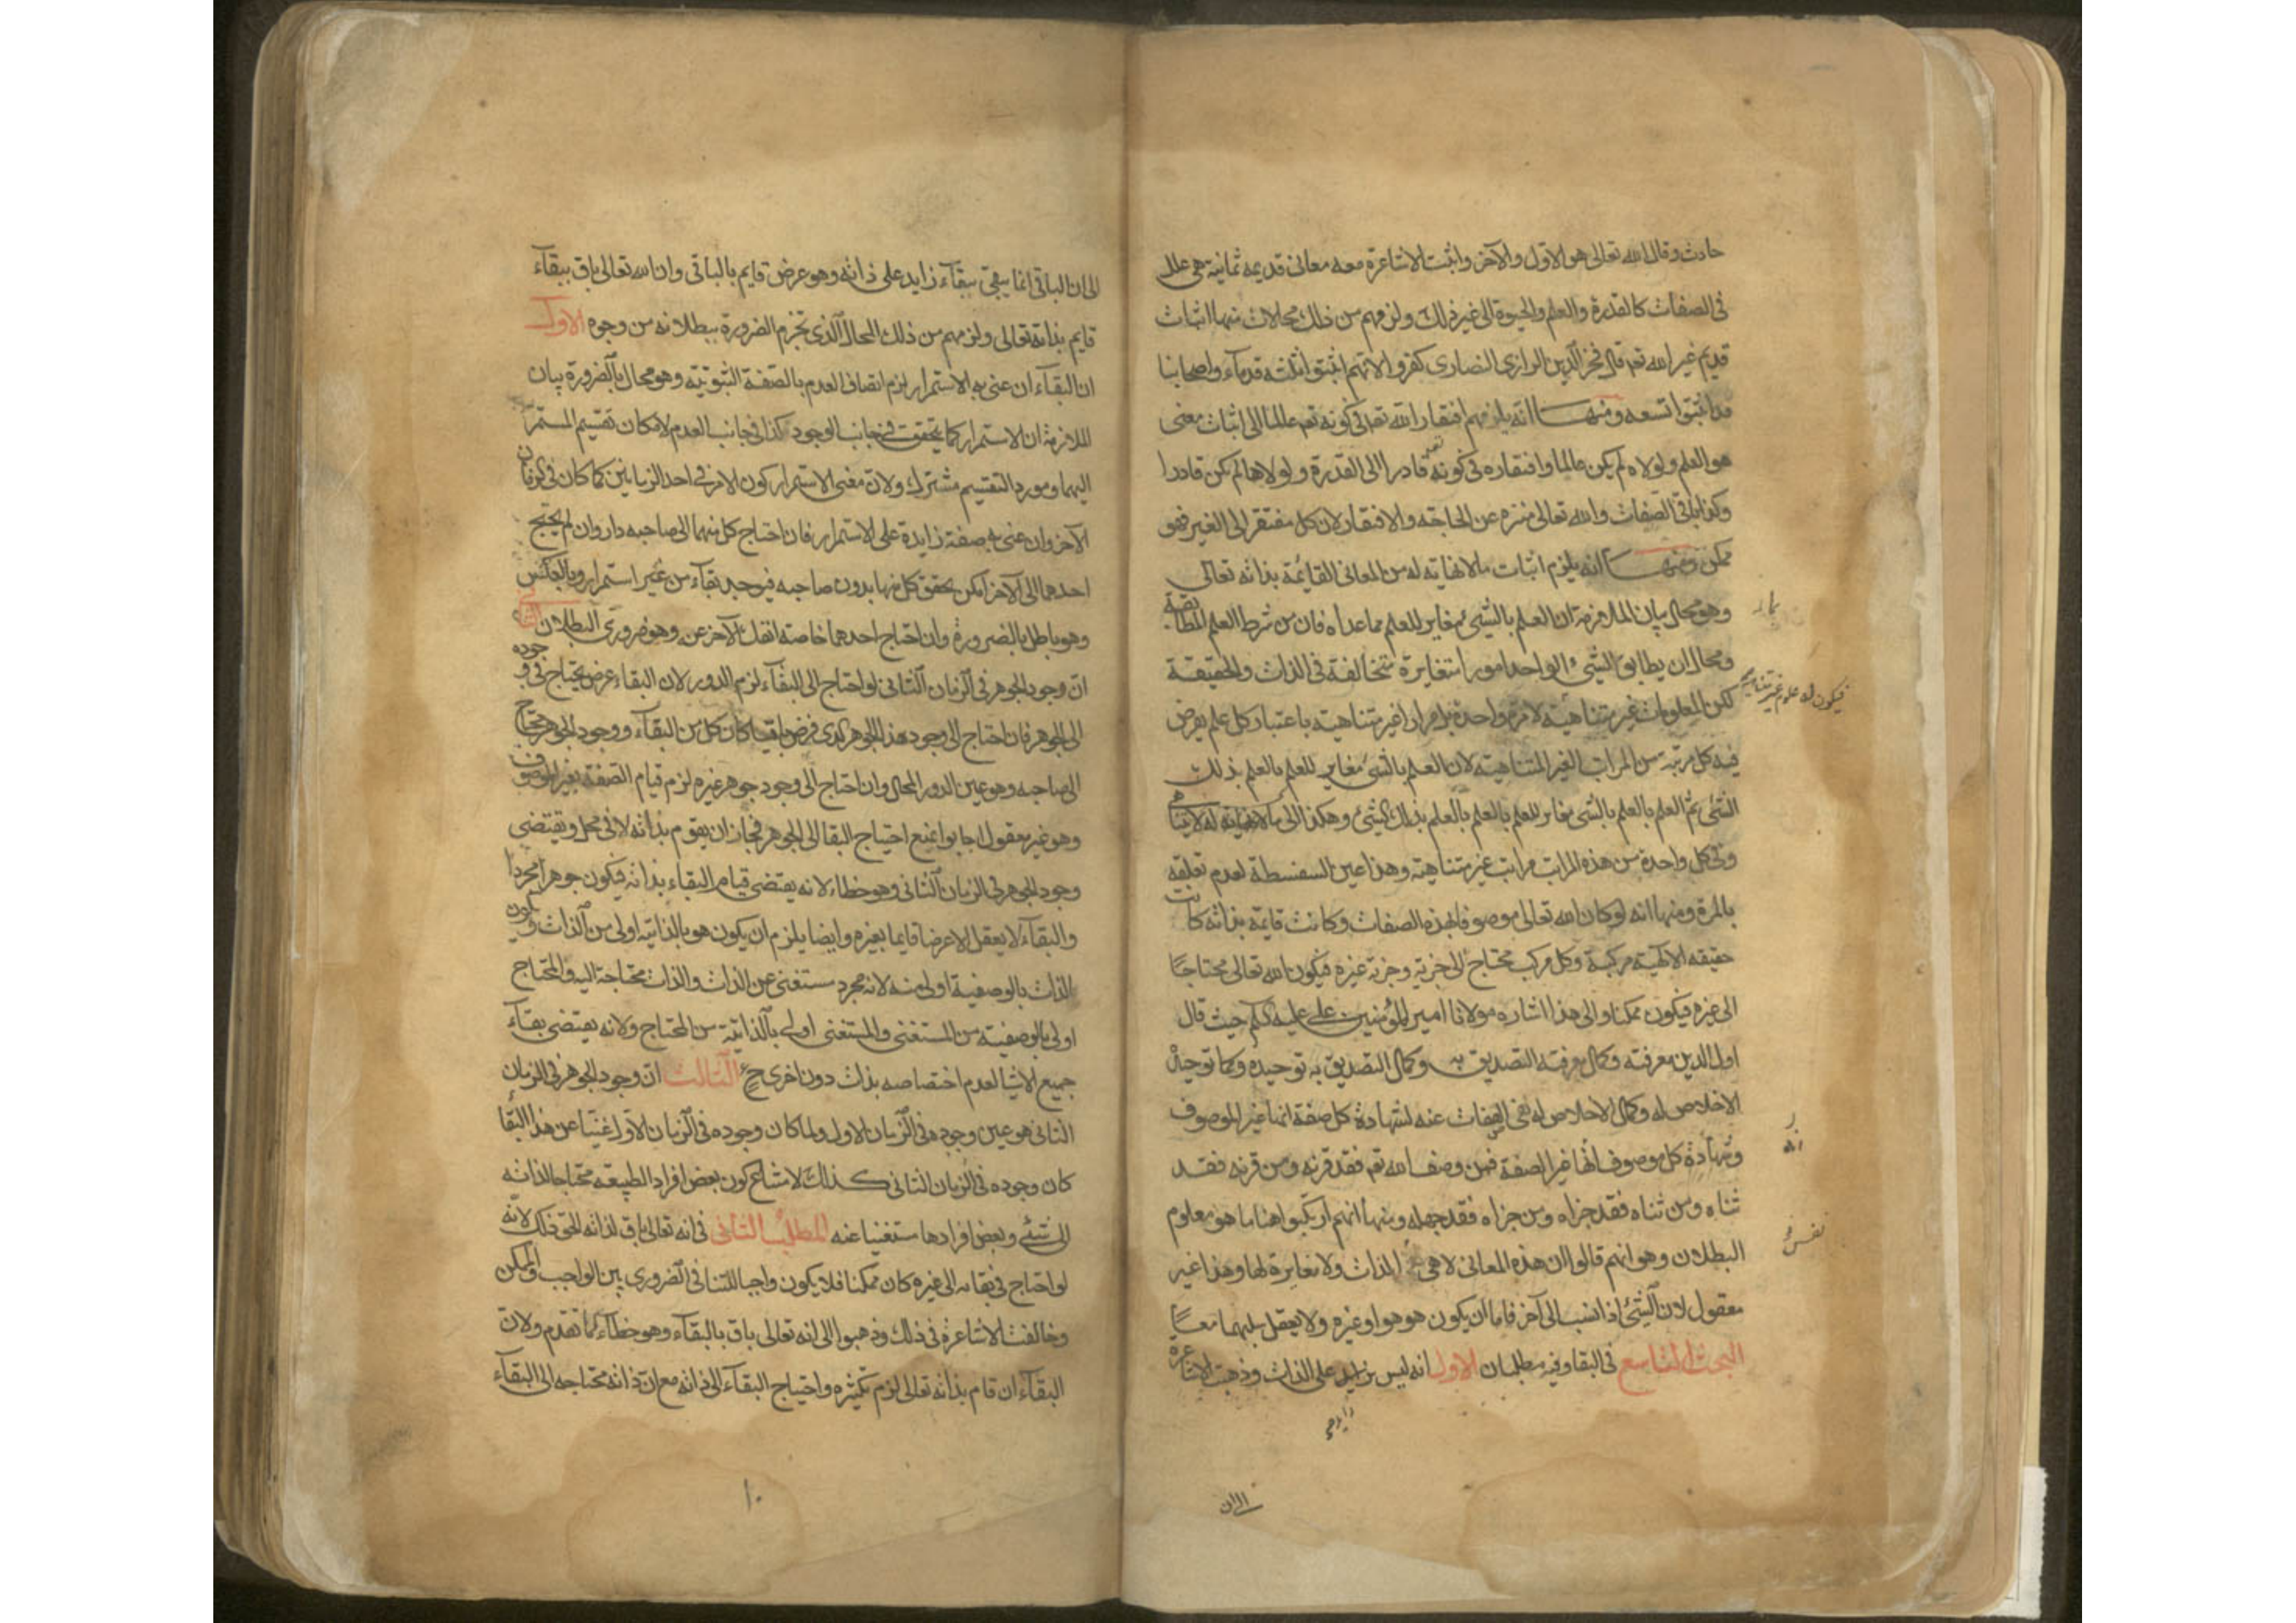 حادث وقال الله تعالى هو الاول والآخر واثبت الاشاعرة معه معانى قديمه ثمانية هى علل
فى الصفات كالقدرة والعلم والحيوة الى غير ذلك ولزمهم من ذلك محالات منها اثبات
قديم غير الله تعه قال فخر الدين الرازى النصارى كفروا لانهم اثبتوا ثلثه قدماء واصحابنا
قد اثبتوا تسعه ومنها انه يلزمهم افتقار الله تعه فى كونه تعه عالما الى اثبات معنى
هو العلم ولولاه لم يكن عالما وافتقاره فى كونه تعه قادرا الى القدرة ولولاها لم يكن قادرا
وكذا باقى الصفات والله تعالى منزه عن الحاجه والافتقار لان كل مفتقر الى الغير فهو
ممكن ومنها انه يلزم اثبات ما لا نهاية له من المعانى القائمة بذاته تعالى
وهو محال بيان الملازمة ان العلم بالشىء مغاير للعلم مما عداه فان من شرط العلم المطابقة
ومحال ان يطابق الشىء الواحد امورا متغايرة متخالفة فى الذات والحقيقة
لكن المعلومات غير متناهية لا مرة واحدة بل مرارا غير متناهية باعتبار كل علم يفرض
فيكون له علوم غير متناهية
فيه كل مرتبة من المراتب الغير المتناهية لان العلم بالشىء مغاير للعلم بالعلم بذلك
الشىء ثم العلم بالعلم بالشىء مغاير للعلم بالعلم بالعلم بذلك الشىء وهكذا الى ما لا نهاية له
وفى كل واحدة من هذه المراتب مراتب غير متناهية وهذا عين السفسطة لعدم تعلقه
بالمرة ومنها انه لو كان الله تعالى موصوفا بهذه الصفات وكانت قايمة بذاته كانت
حقيقه الالهية مركبة وكل مركب محتاج الى جزيه وجزيه غيره فيكون الله تعالى محتاجا
الى غيره فيكون ممكنا والى هذا اشاره مولانا امير المؤمنين على عليه السلم حيث قال
اول الدين معرفته وكمال معرفته التصديق به وكمال التصديق به توحيده وكمال توحيده
الاخلاص له وكمال الاخلاص له نفى الصفات عنه لشهادة كل صفة انها غير الموصوف
وشهادة كل موصوف انها غير الصفة فمن وصف الله تعه فقد قرنه ومن قرنه فقد
ثناه ومن ثناه فقد جزاه ومن جزاه فقد جهله ومنها انهم ارتكبوا هنا ما هو معلوم
البطلان وهو انهم قالوا ان هذه المعانى لا هى الذات ولا مغايرة لها وهذا غير
معقول لان الشىء اذا نسب الى آخر فاما ان يكون هو هو او غيره ولا يعقل سلبهما معا
البحث التاسع فى البقا وفيه مطلبان الاول انه ليس بزايد على الذات وذهب الاشاعرة
الى ان
الى ان الباقى انما يبقى ببقآء زايد على ذاته وهو عرض قايم بالباقى وان الله تعالى باق ببقاء
قايم بذاته تعالى ولزمهم من ذلك المحال الذى تجزم الضرورة ببطلانه من وجوه الاول
ان البقآء ان عنى به الاستمرار لزم اتصاف العدم بالصفة الثبوتية وهو محال بالضرورة بيان
الملازمة ان الاستمرار كما يتحقق فى جانب الوجود كذا فى جانب العدم لامكان تقسيم المستمر
اليهما ومورد التقسيم مشترك ولان معنى الاستمرار كون الامر فى احد الزمانين كما كان فى الزمان
الآخر وان عنى به صفة زايدة على الاستمرار فان احتاج كل منهما الى صاحبه دار وان لم يحتج
احدهما الى الآخر امكن تحقق كل منهما بدون صاحبه فيوجد بقآء من غير استمرار وبالعكس
وهو باطل بالضرورة وان احتاج احدهما خاصة انفك الآخر عنه وهو ضرورى البطلان الثانى
ان وجود الجوهر فى الزمان الثانى لو احتاج الى البقآء لزم الدور لان البقاء عرض يحتاج فى وجوده
الى الجوهر فان احتاج الى وجود هذا الجوهر الذى فرض باقيا كان كل من البقآء ووجود الجوهر محتاج
الى صاحبه وهو عين الدور المحال وان احتاج الى وجود جوهر غيره لزم قيام الصفة بغير الموصوف
وهو غير معقول اجابوا بمنع احتياج البقا الى الجوهر فجاز ان يقوم بذاته لا فى محل ويقتضى
وجود الجوهر فى الزمان الثانى وهو خطاء لانه يقتضى قيام البقاء بذاته فيكون جوهرا مجردا
والبقآء لا يعقل الا عرضا قايما بغيره وايضا يلزم ان يكون هو بالذاتية اولى من الذات ويكون
الذات بالوصفية اولى منه لانه مجرد مستغنى عن الذات والذات محتاجة اليه والمحتاج
اولى بالوصفية من المستغنى والمستغنى اولى بالذاتية من المحتاج ولانه يقتضى بقآء
جميع الاشيا لعدم اختصاصه بذات دون اخرى ح الثالث ان وجود الجوهر فى الزمان
الثانى هو عين وجوده فى الزمان الاول ولما كان وجوده فى الزمان الاول غنيا عن هذا البقا
كان وجوده فى الزمان الثانى كذلك لامتناع كون بعض افراد الطبيعه محتاجا لذاته
الى شىء وبعض افرادها مستغنيا عنه المطلب الثانى فى انه تعالى باق لذاته الحق ذلك لانه
لو احتاج فى بقائه الى غيره كان ممكنا فلا يكون واجبا للتنافى الضرورى بين الواجب والممكن
وخالفت الاشاعرة فى ذلك وذهبوا الى انه تعالى باق بالبقآء وهو خطآء لما تقدم ولان
البقآء ان قام بذاته تعالى لزم تكثره واحتياج البقآء الى ذاته مع ان ذاته محتاجه الى البقآء